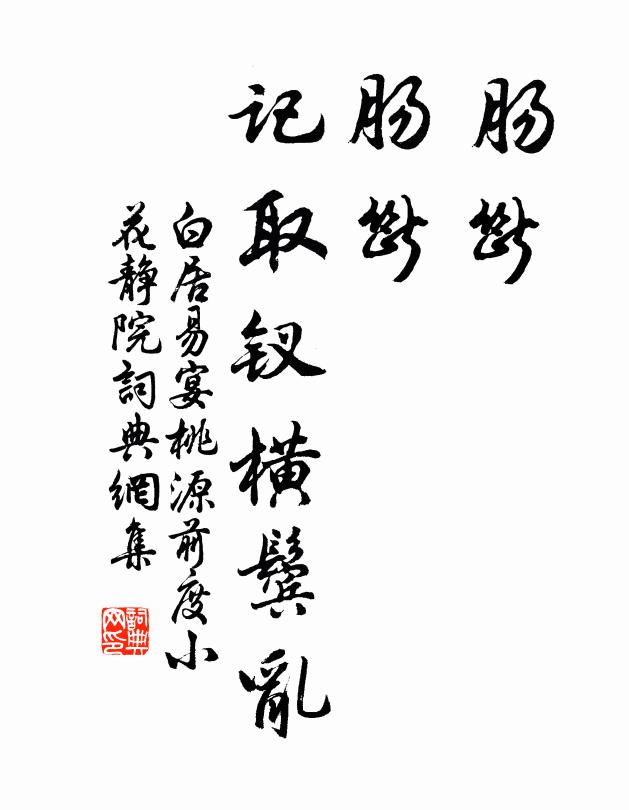 肠断
肠断
记取钗横鬓乱
白居易宴桃源前度小
花静院詞典網集
詞典网印